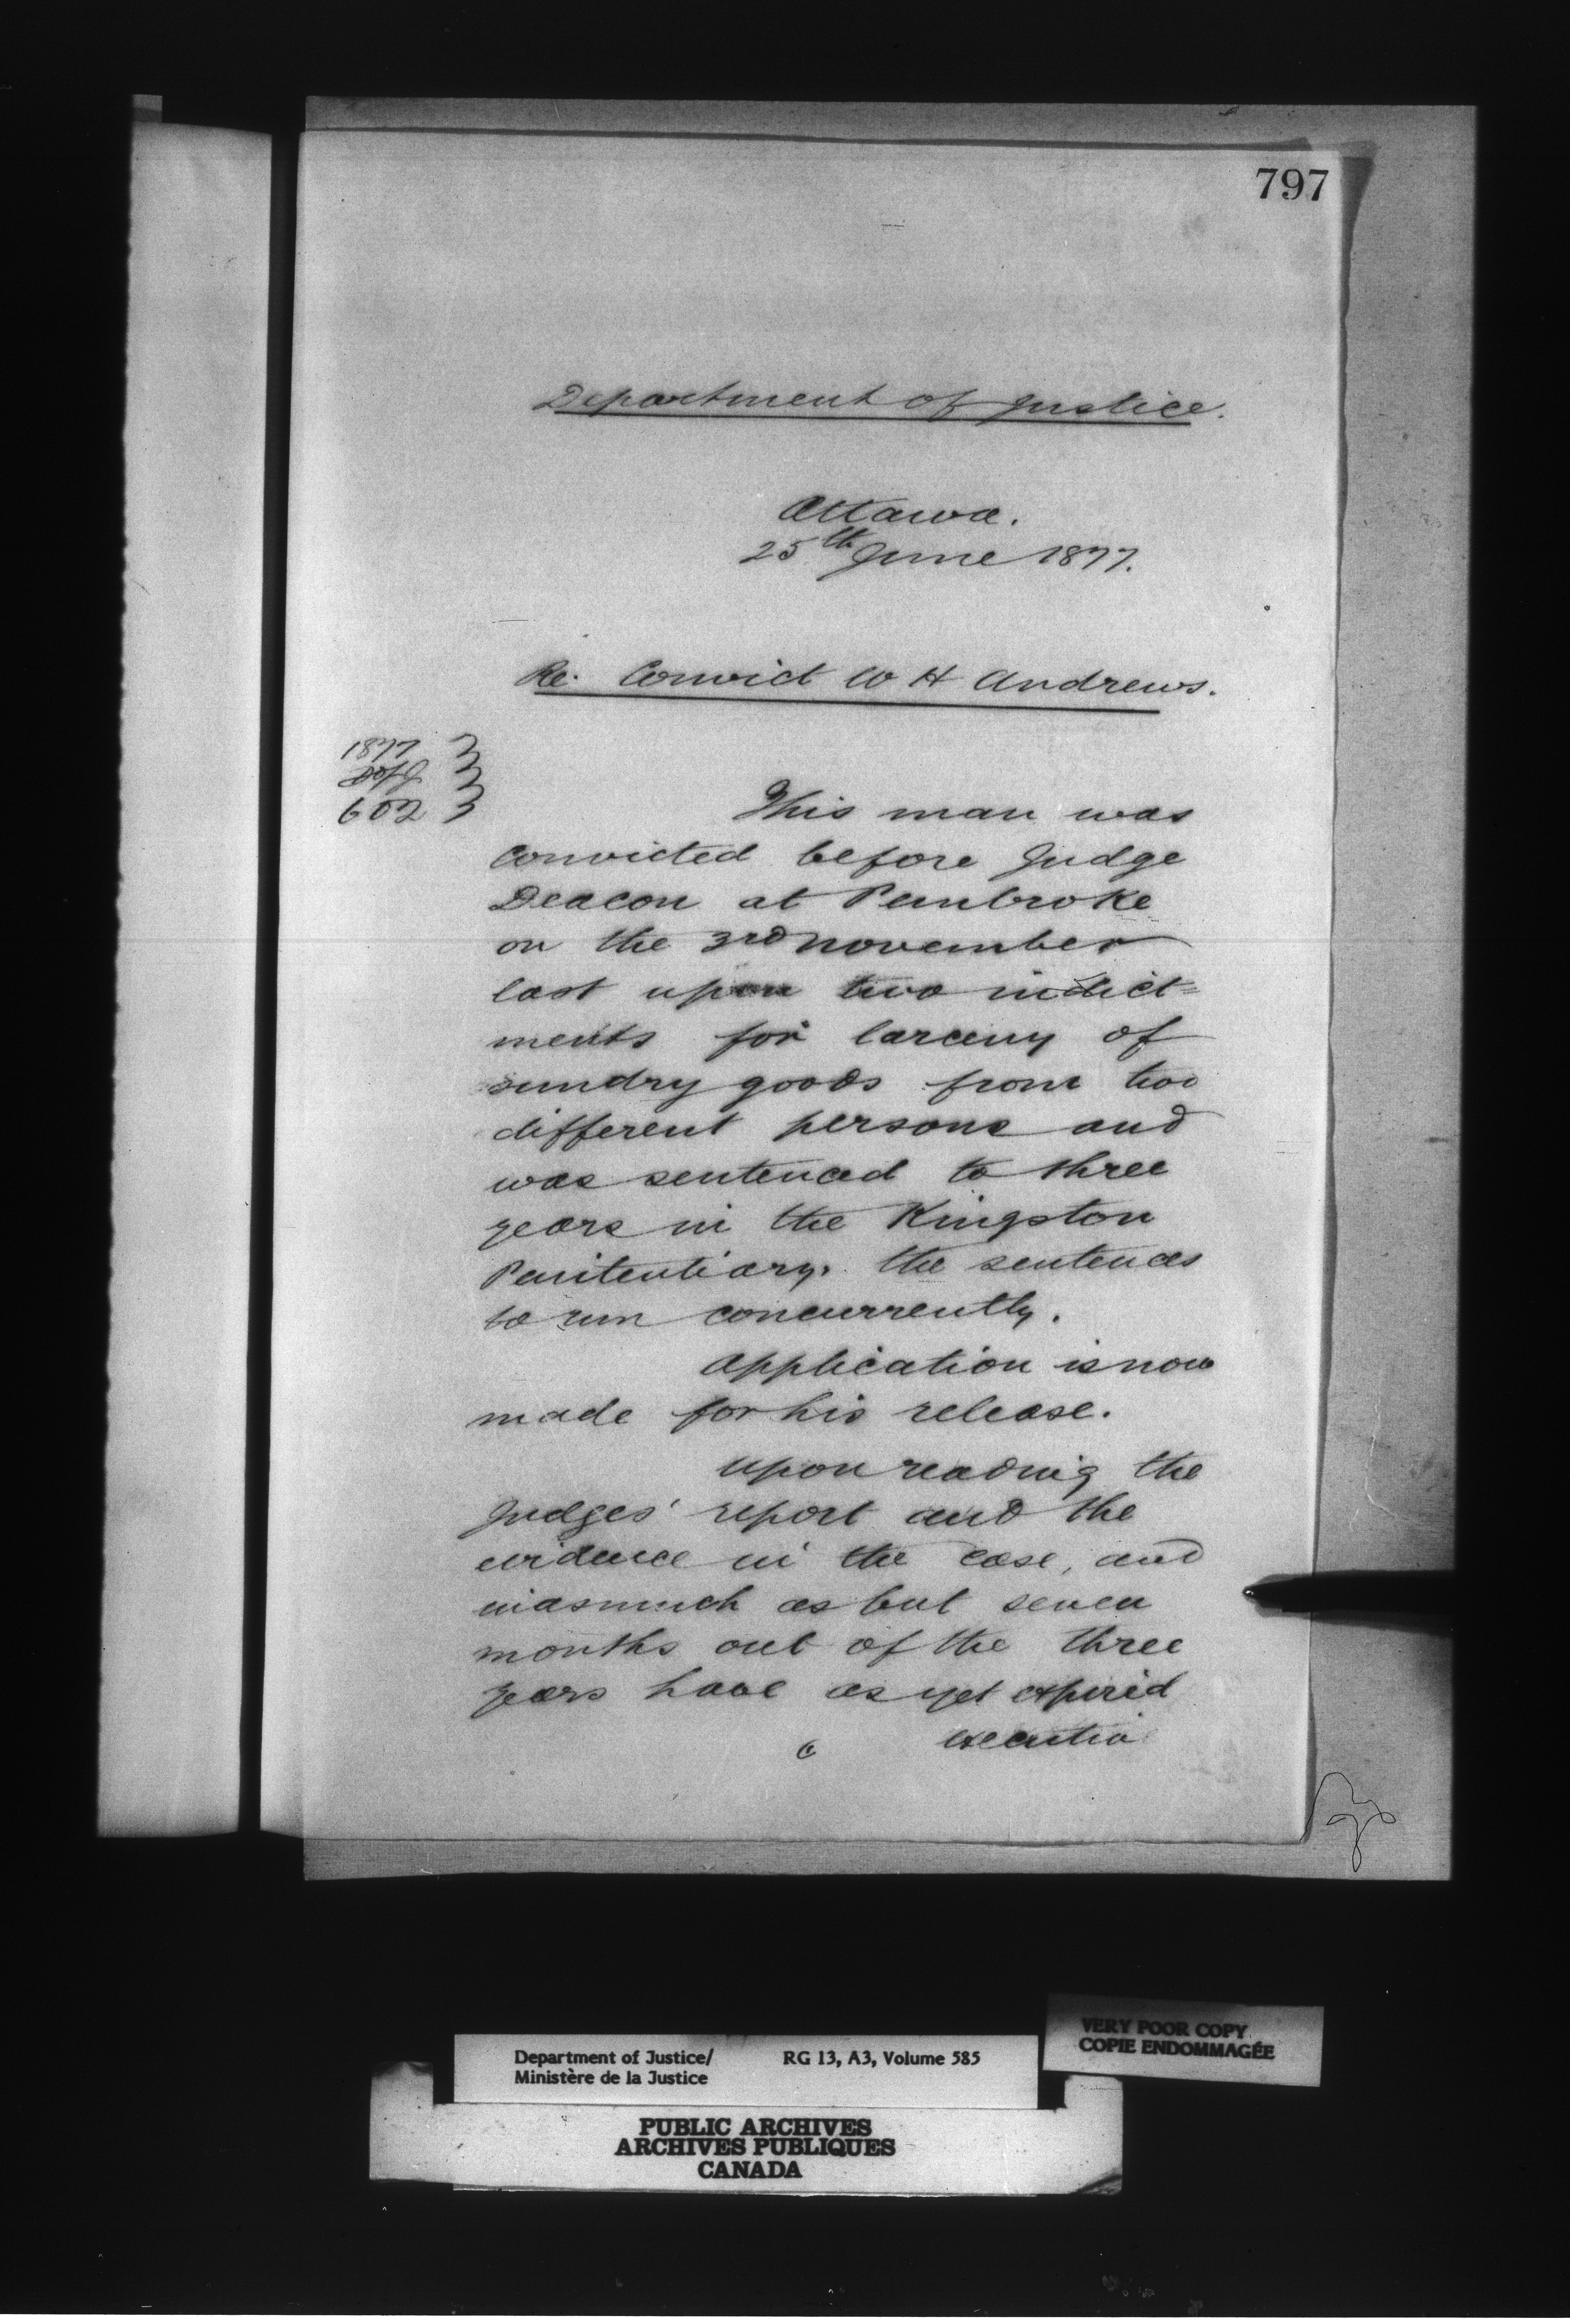 797
Department of Justice.
Ottawa.
25th June 1877.
Re. Convict W H Andrews.
1877
D of J
602
This man was
convicted before Judge
Deacon at Pembroke
on the 3rd November
last upon two indict=
ments for larceny of
sundry goods from two
different persons and
was sentenced to three
years in the Kingston
Penitentiary. the sentences
to run concurrently.
Application is now
made for his release.
Upon reading the
Judges' report and the
evidence in the case, and
inasmuch as but seven
months out of the three
years have as yet expired
VERY POOR COPY
COPIE ENDOMMAGÉE
Department of Justice/ RG 13, A3, Volume 585
Ministère de la Justice
PUBLIC ARCHIVES
ARCHIVES PUBLIQUES
CANADA